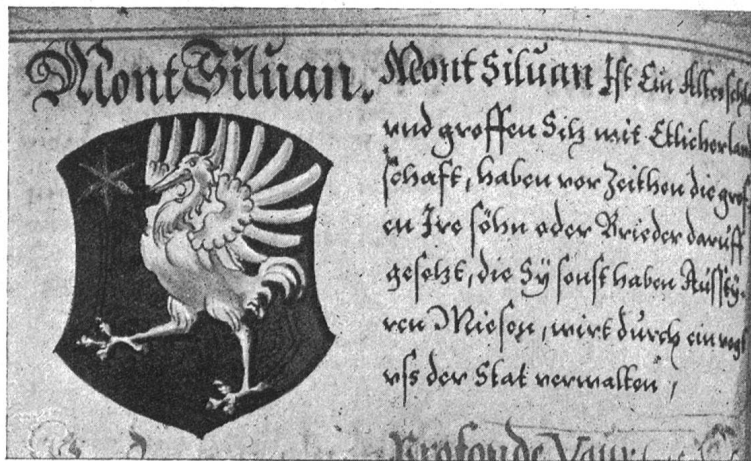 MontSiluan.
Mont Siluan Ist Ein Altes schlo
vnd grossen Silz mit Etlicher lan
schaft, haben vor Zeithen die gref
en Ire söhn oder Brieder daruff
gesetzt, die Sÿ sonst haben Aussty
ren Miesen, wirt durch ein vogt
vss der Stat verwalten,
Profonde Vaux